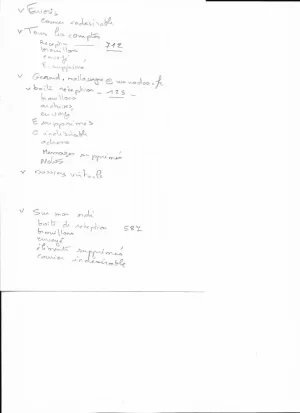 v Favoris
courrier indésirable
v Tous les comptes
Reception 712
brouillons
envoyé
E. supprimé
v Gerard.        @wanadoo.fr
v boîte réception - 125 -
brouillons
archives
envoyés
E supprimés
C indésirable
Messages supprimés
Notes
v Dossiers virtuels
v Sur mon ordi
boite de réception 587
brouillons
envoyé
éléments supprimés
courrier indésirable